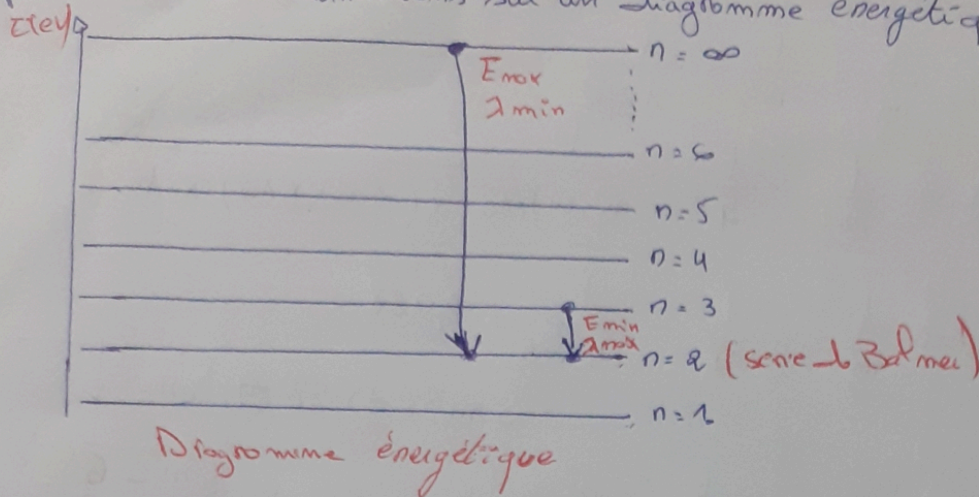 diagramme énergétiq
E(ev)
n = ∞
Emax
λ min
n = 6
n = 5
n = 4
n = 3
Emin
λmax
n = 2 (serie d Balmer)
n = 1
Diagramme énergétique